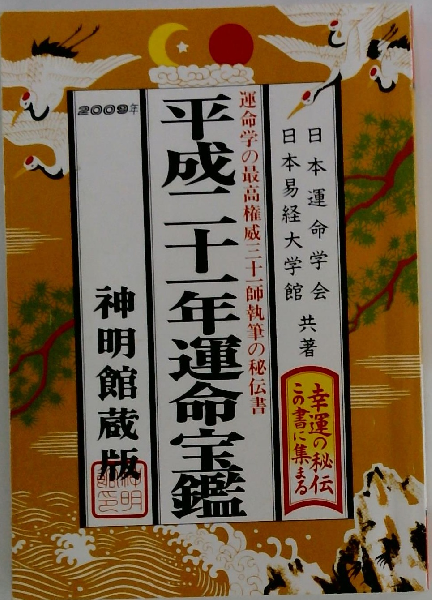 日本運命学会
日本易経大学館
共著
幸運の秘伝
この書に集まる
運命学の最高権威三十一師執筆の秘伝書
平成二十一年運命宝鑑
2009年
神明館蔵版